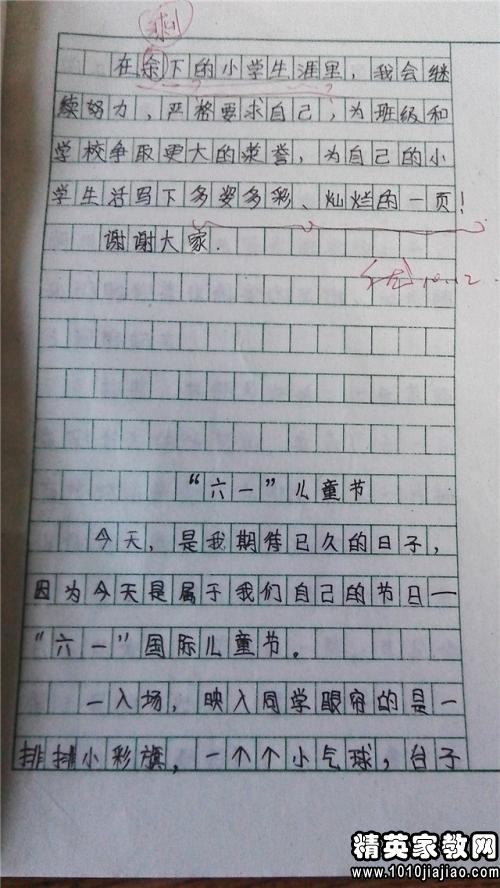 剩
在余下的小学生涯里，我会继
续努力，严格要求自己，为班级和
学校争取更大的荣誉，为自己的小
学生活写下多姿多彩、灿烂的一页！
谢谢大家.
优 10.12
“六一”儿童节
今天，是我期待已久的日子，
因为今天是属于我们自己的节日一
“六一”国际儿童节。
一入场，映入同学眼帘的是一
排排小彩旗，一个个小气球，台子
精英家教网
www.1010jiajiao.com